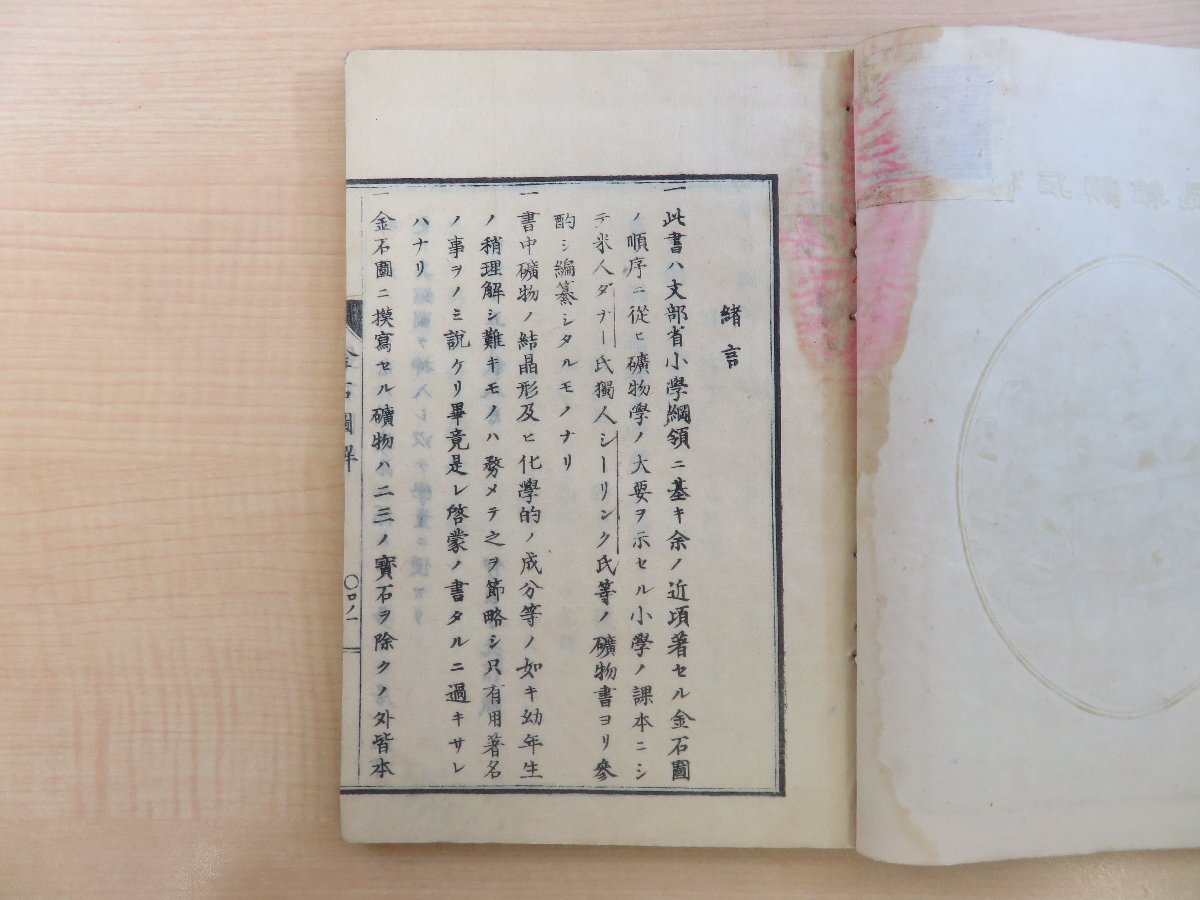 緒言
一 此書ハ文部省小學綱領ニ基キ余ノ近頃著セル金石圖
ノ順序ニ從ヒ礦物學ノ大要ヲ示セル小學ノ課本ニシ
テ米人ダナー氏獨人シーリンク氏等ノ礦物書ヨリ參
酌シ編纂シタルモノナリ
一 書中礦物ノ結晶形及ヒ化學的ノ成分等ノ如キ幼年生
ノ稍理解シ難キモノハ務メテ之ヲ節略シ只有用著名
ノ事ヲノミ說ケリ畢竟是レ啓蒙ノ書タルニ過キサレ
ハナリ
一 金石圖ニ摸寫セル礦物ハ二三ノ寶石ヲ除クノ外皆本
金石圖解
〇口ノ一